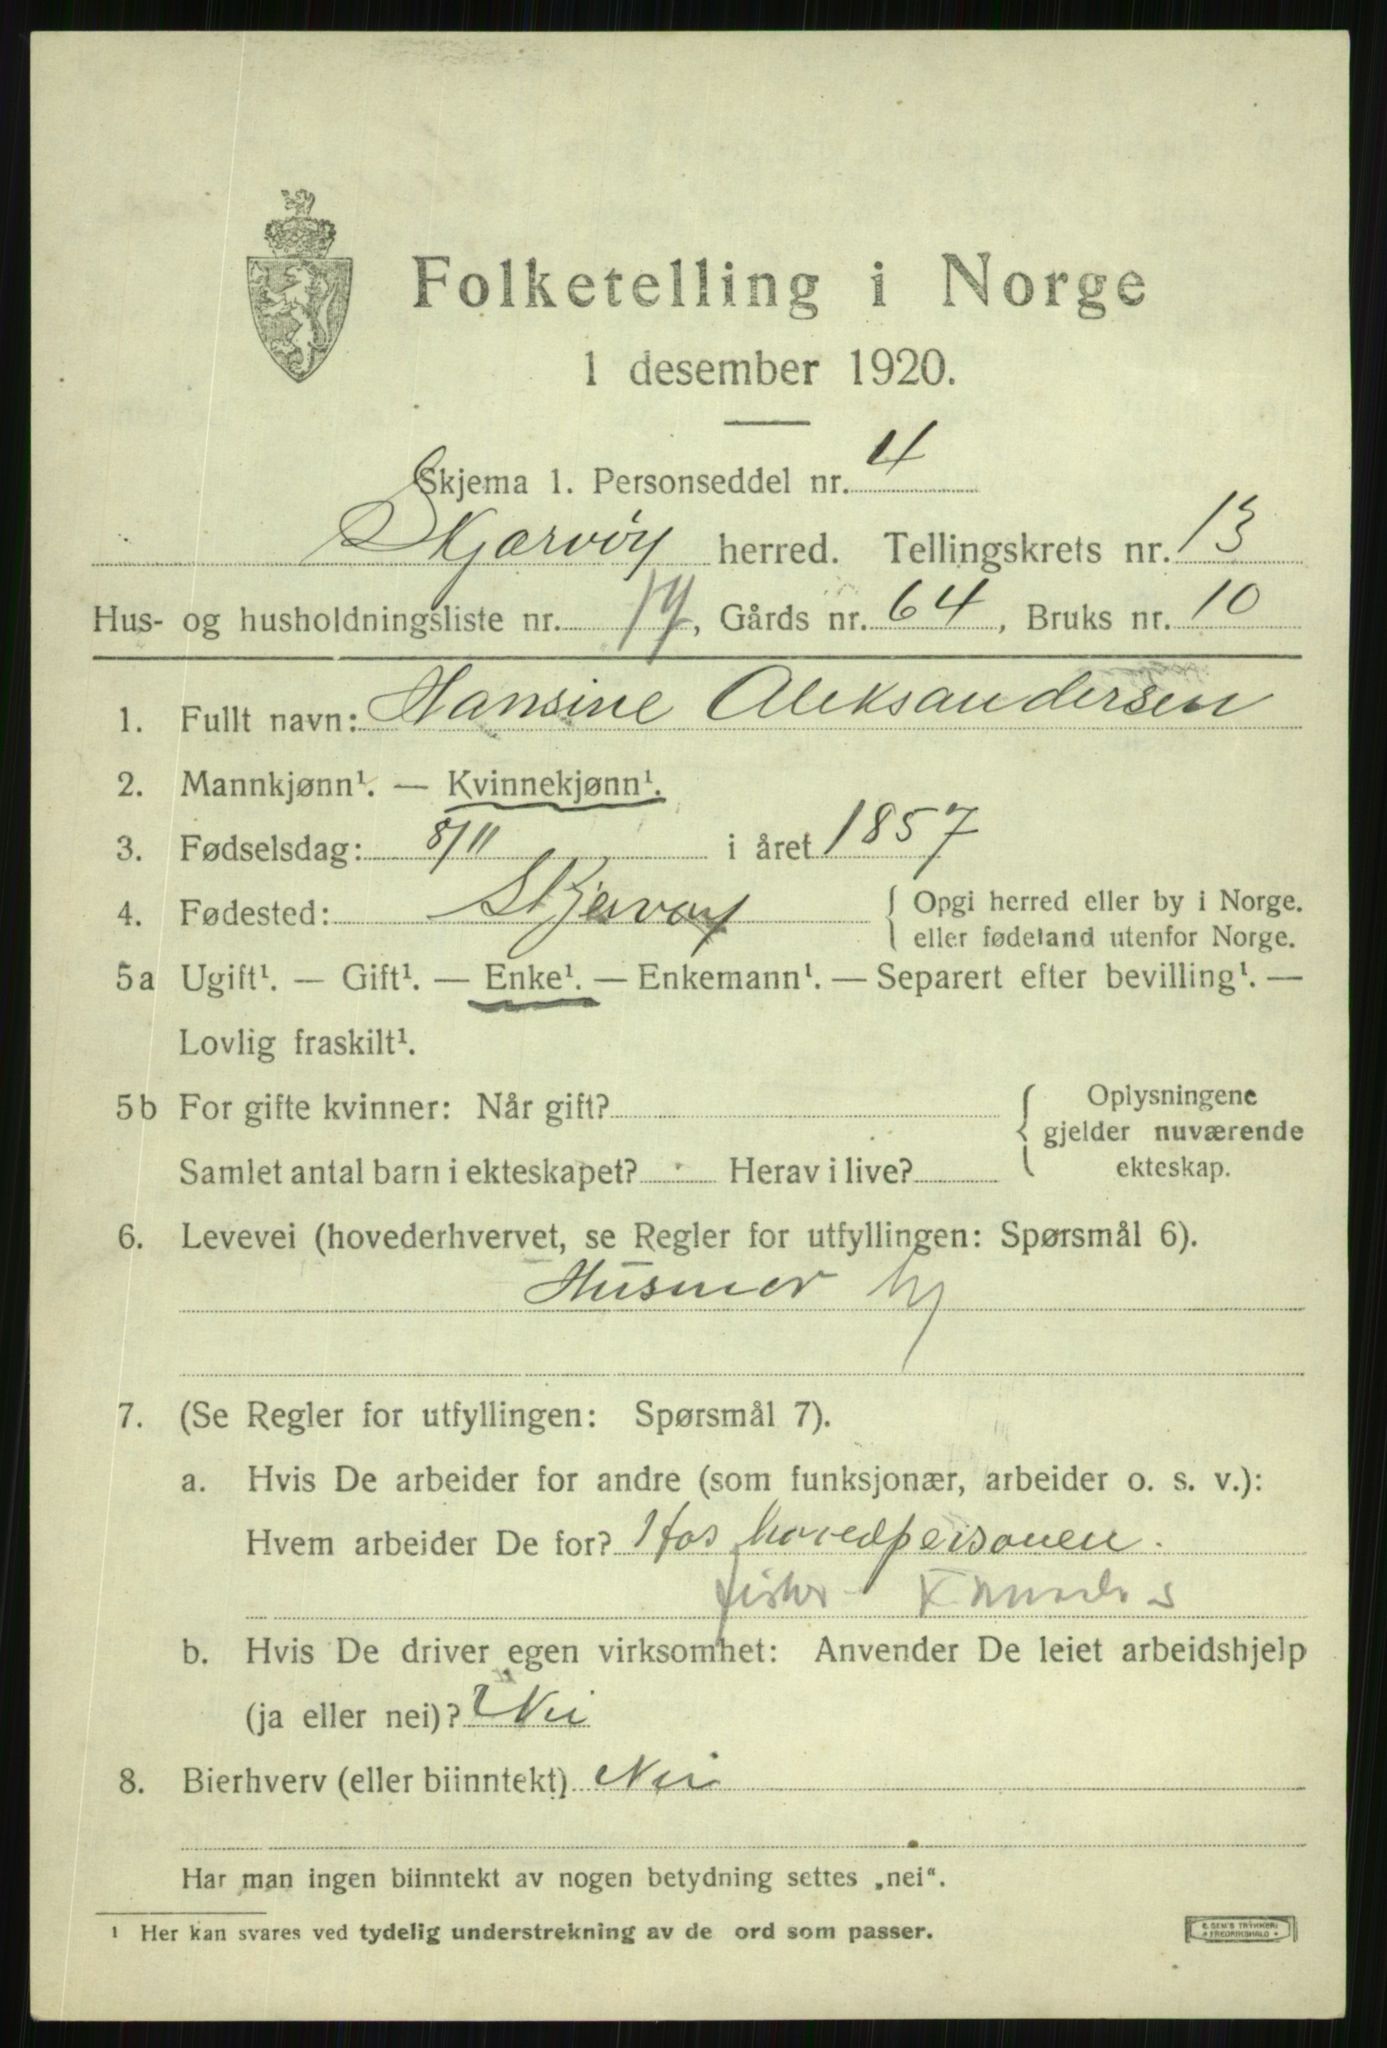 Folketelling i Norge
1 desember 1920.
Skjema 1. Personseddel nr. 4
Skjærvøy herred. Tellingskrets nr. 13
Hus- og husholdningsliste nr. , Gårds nr. 64, Bruks nr. 10
1. Fullt navn: Hansine Aleksandersen
2. Mannkjønn¹. — Kvinnekjønn¹.
3. Fødselsdag: 8/11 i året 1857
4. Fødested: Skjervøy { Opgi herred eller by i Norge.
eller fødeland utenfor Norge.
5a Ugift¹. — Gift¹. — Enke¹. — Enkemann¹. — Separert efter bevilling¹. —
Lovlig fraskilt¹.
5b For gifte kvinner: Når gift? { Oplysningene
gjelder nuværende
Samlet antal barn i ekteskapet? Herav i live? ekteskap.
6. Levevei (hovederhvervet, se Regler for utfyllingen: Spørsmål 6).
Husmor
7. (Se Regler for utfyllingen: Spørsmål 7).
a. Hvis De arbeider for andre (som funksjonær, arbeider o. s. v.):
Hvem arbeider De for? Hos hovedpersonen.
fisker
b. Hvis De driver egen virksomhet: Anvender De leiet arbeidshjelp
(ja eller nei)? Nei
8. Bierhverv (eller biinntekt) Nei
Har man ingen biinntekt av nogen betydning settes „nei“.
¹ Her kan svares ved tydelig understrekning av de ord som passer.
E. SEM'S TRYKKERI
FREDRIKSHALD